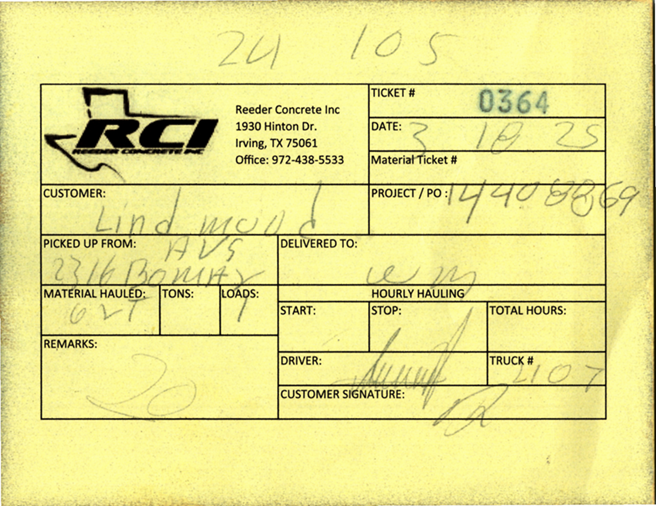 24 105
RCI
REEDER CONCRETE INC
Reeder Concrete Inc
1930 Hinton Dr.
Irving, TX 75061
Office: 972-438-5533
TICKET # 0364
DATE: 3 18 25
Material Ticket #
CUSTOMER: Lind mood
PROJECT / PO : 14408869
PICKED UP FROM: AVS
2316
DELIVERED TO: wm
MATERIAL HAULED:
TONS:
LOADS: 1
HOURLY HAULING
START:
STOP:
TOTAL HOURS:
REMARKS: 20
DRIVER:
TRUCK # 407
CUSTOMER SIGNATURE: